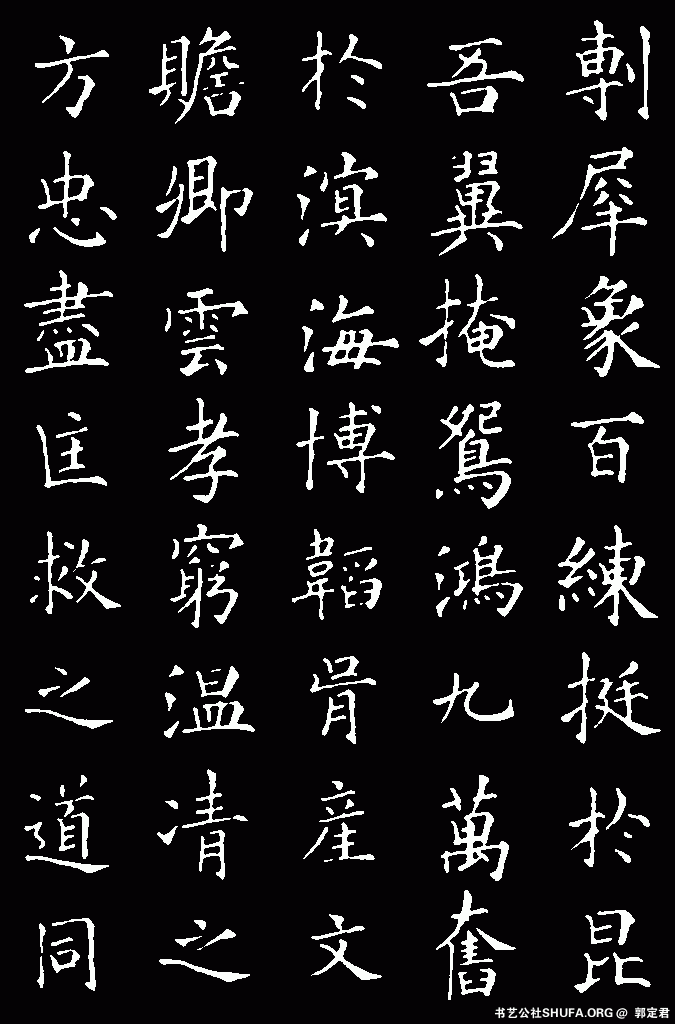 剸犀象百練挺於昆
吾翼掩鴛鴻九萬奮
於滇海博韜胥産文
贍卿雲孝窮温凊之
方忠盡匡救之道同
书艺公社SHUFA.ORG @ 郭定君